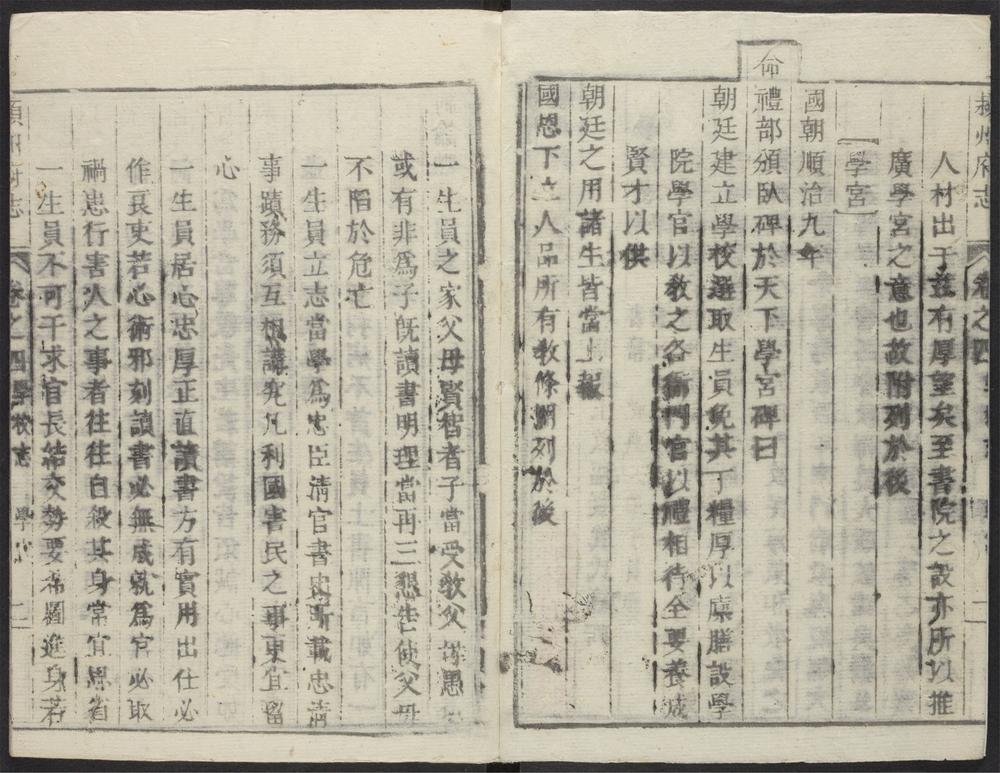 府志 卷之四
人材出于茲有厚望矣至書院之設亦所以推
廣學宮之意也故附列於後
【學宮】
國朝順治九年
命禮部頒臥碑於天下學宮碑曰
朝廷建立學校選取生員免其丁糧厚以廩膳設學
院學官以教之各衙門官以禮相待全要養成
賢才以供
朝廷之用諸生皆當上報
國恩下立人品所有教條開列於後
一生員之家父母賢智者子當受教父母愚
或有非為子既讀書明理當再三懇告使父母
不陷於危亡
一生員立志當學為忠臣清官書史所載忠清
事蹟務須互相講究凡利國害民之事更宜留
心
一生員居心忠厚正直讀書方有實用出仕必
作良吏若心術邪刻讀書必無成就為官必取
禍患行害人之事者往往自殺其身常宜思省
一生員不可干求官長結交勢要希圖進身若
府志 卷之四學校志 學 二